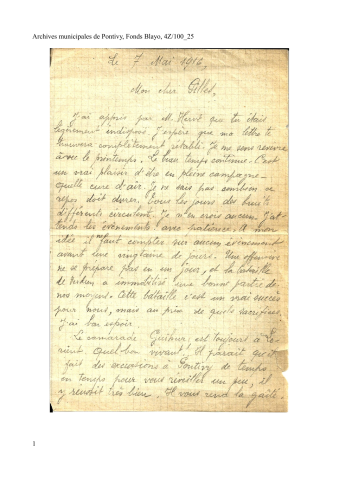 Archives municipales de Pontivy, Fonds Blayo, 4Z/100_25
Le 7 Mai 1916,
Mon cher Gilles,
J'ai appris par M. Hervé que tu étais
légèrement indispos. J'espère que ma lettre te
trouvera complètement rétabli. Je me sens revivre
avec le printemps. Le beau temps continue. C'est
un vrai plaisir d'être en pleine campagne -
quelle cure d'air. Je ne sais pas combien ce
repos doit durer, tous les jours des bruits
différents circulent. Je n'en crois aucun. J'at-
tends les évènements avec patience. A mon
idée il faut compter sur aucun évènement
avant une vingtaine de jours. Une offensive
ne se prépare pas en un jour, et la bataille
de Verdun a immobilisé une bonne partie de
nos moyens. Cette bataille c'est un vrai succès
pour nous, mais au prix de quels sacrifices.
J'ai bon espoir.
Le camarade est toujours à Lo-
rient. Quel bon vivant. Il paraît qu'il
fait des excursions à Pontivy de temps
en temps pour vous réveiller un peu, il
y réussit très bien. Il vous rend la gaîté.
1